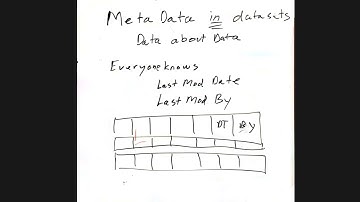 Meta Data in datasets
Data about Data
Everyone knows
Last Mod Date
Last Mod By
DT BY